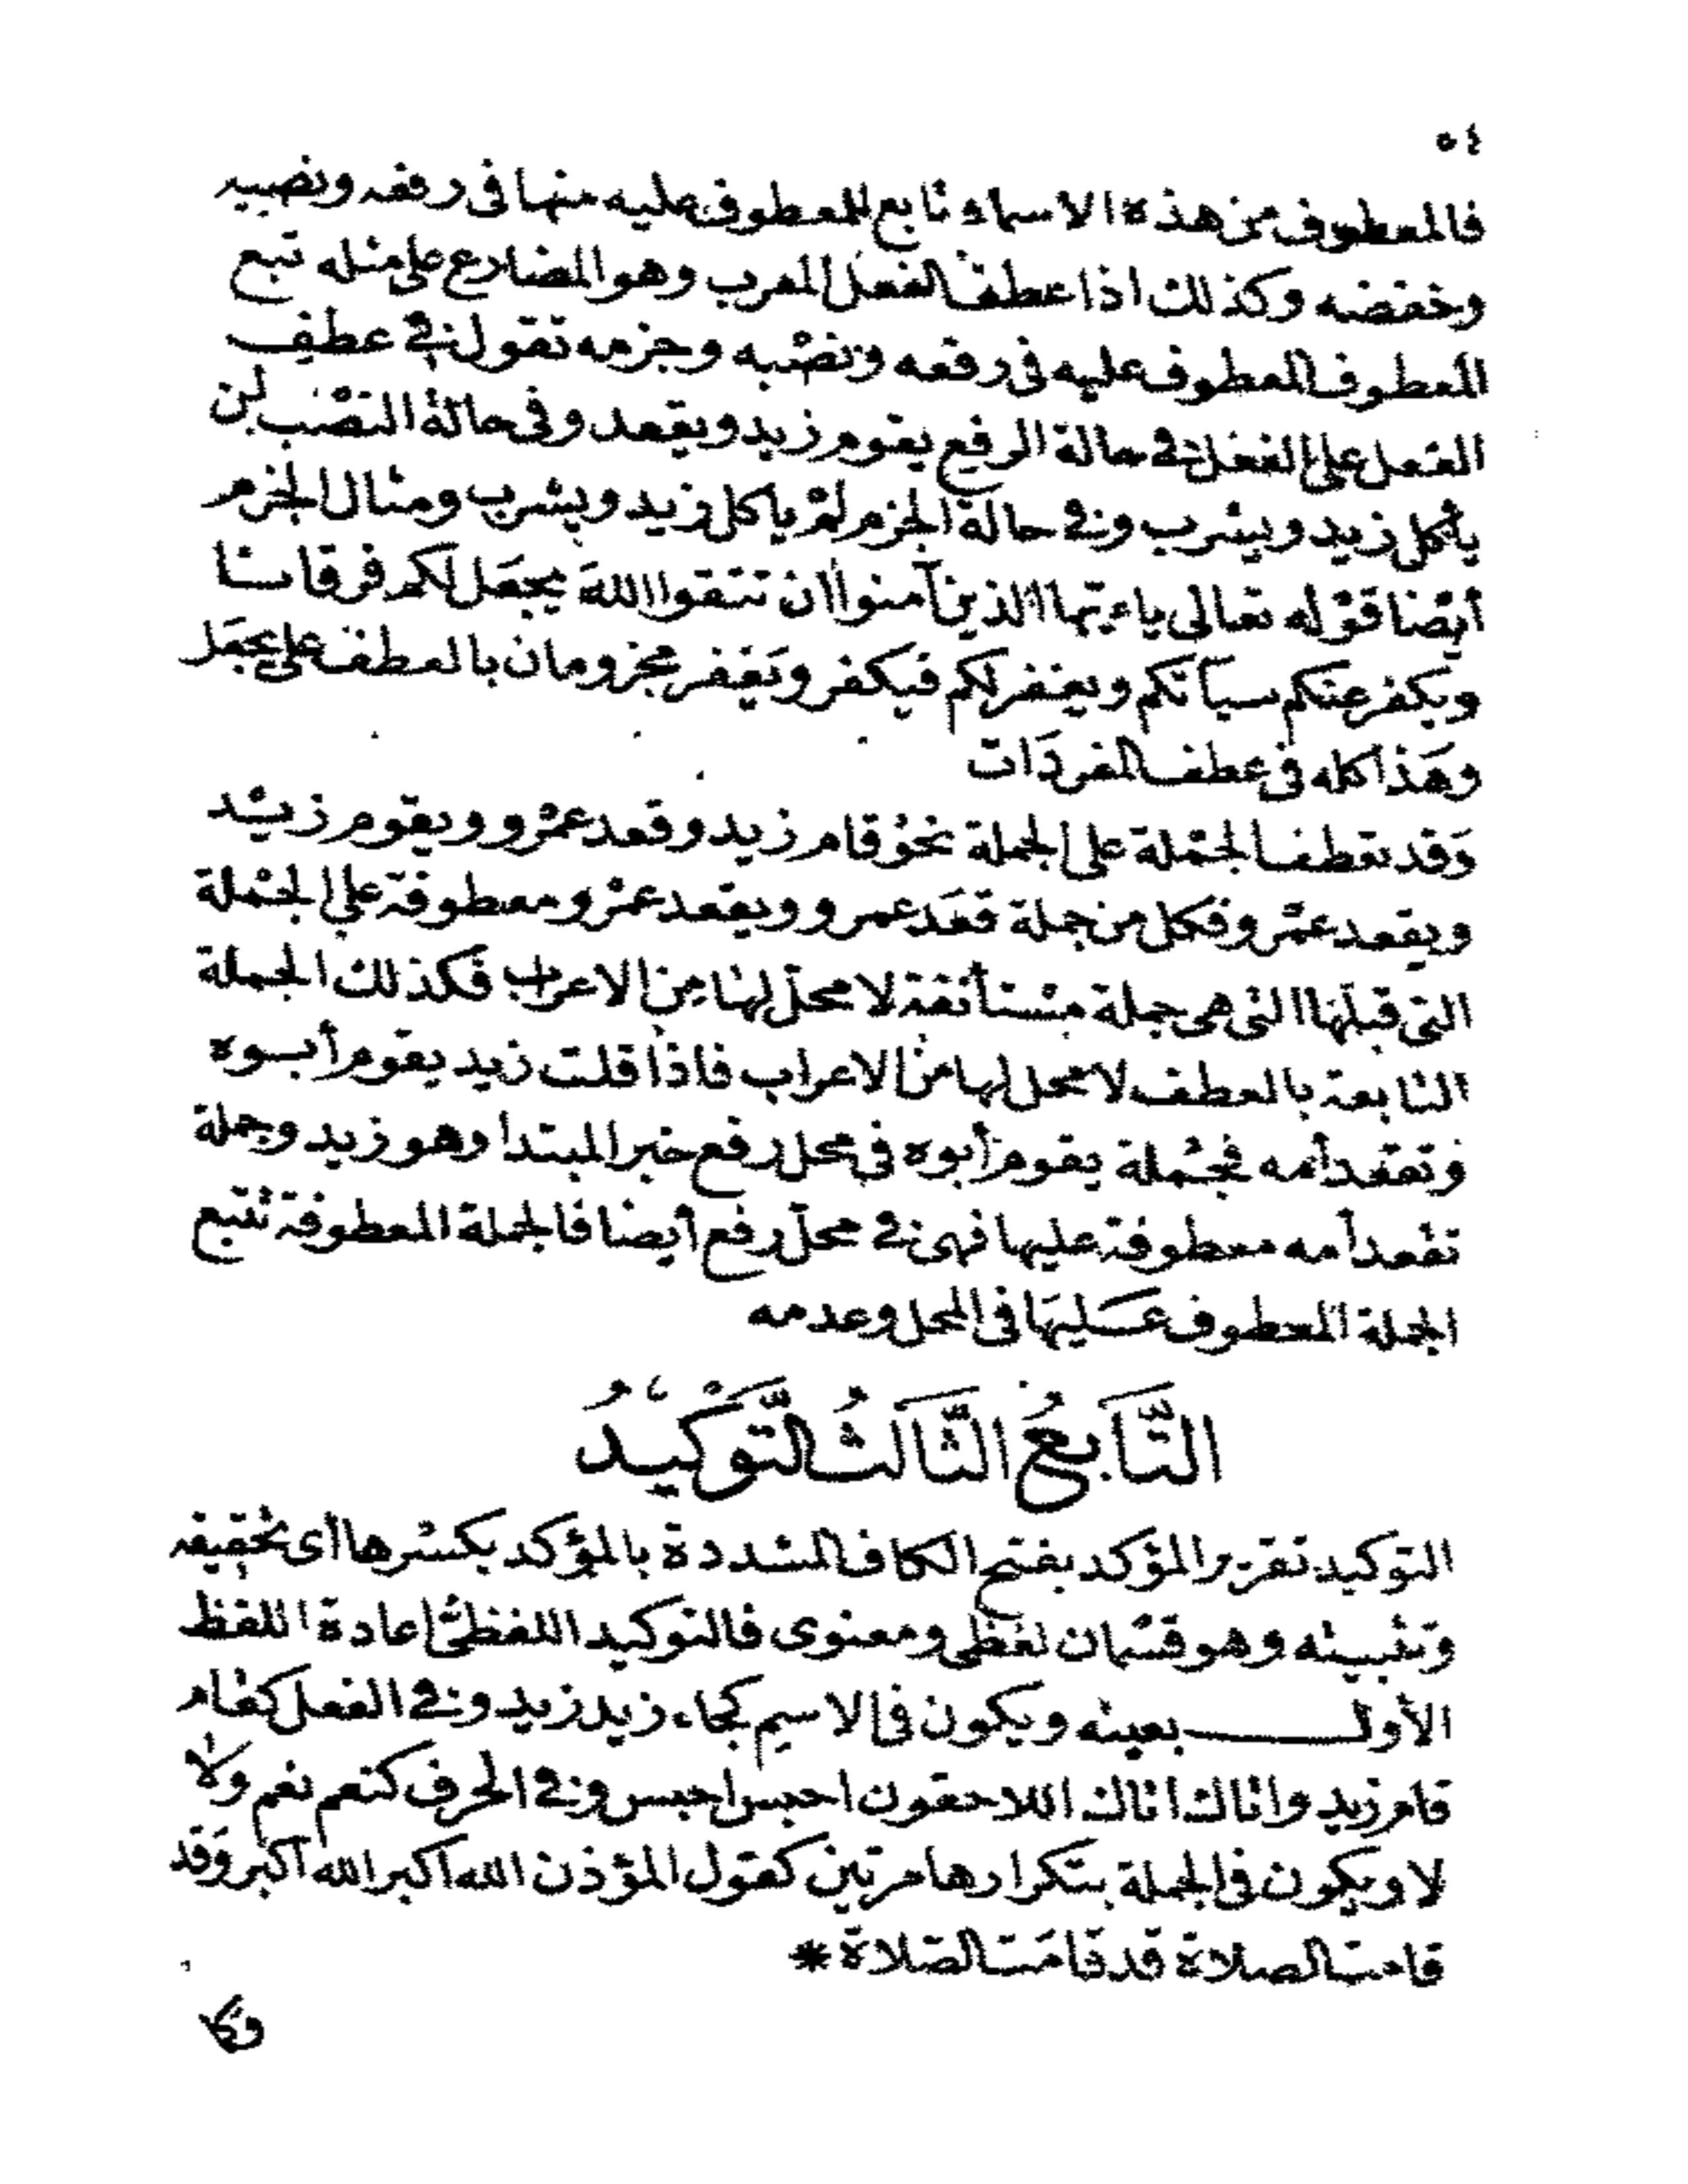 ٥٤
فالمعطوف من هذه الاسماء تابع للمعطوف عليه منها فى رفعه ونصبه
وخفضه وكذلك اذا عطف الفعل المعرب وهو المضارع على مثله تبع
المعطوف المعطوف عليه فى رفعه ونصْبه وجزمه تقول فى عطف
الفعل على الفعل فى حالة الرفع يقوم زيد ويقعد وفى حالة النصْب لن
يأكل زيد ويشرب وفى حالة الجزم لمْ يأكل زيد ويشرب ومثال الجزم
أيضا قوْله تعالى ياءيها الذين آمنوا ان تتقوا اللهَ يجعَل لكم فرقانا
ويكفر عنكم سيآتكم ويغفر لكم فيكفر ويَغفر مجزومان بالعطف على يجعَل
وهَذا كله فى عطف المفردَات
وَقد تعطف الجمْلة على الجملة نحوُ قام زيد وقعد عمْرو ويقوم زيْد
ويقعد عمْرو فكل من جملة قعَد عمرو ويقعد عمْرو معطوفة على الجمْلة
التى قبلهَا التى هى جملة مسْتأنفة لا محلّ لهَا مِن الاعراب فكذلك الجملة
التابعة بالعطف لا محل لها منَ الاعراب فاذا قلت زيد يقوم أبوه
وتقعد أمه فجمْلة يقوم أبوه فى محل رفع خبر المبتدا وهو زيد وجملة
تقعد أمه معطوفة عليها فهى فى محلّ رفع أيضا فالجملة المعطوفة تتبع
الجملة المعطوف عَليهَا فى المحل وعدمه
التَّابِعُ الثَّالثُ التَّوْكِيْدُ
التوكيد تقرير المؤكد بفتح الكاف المشددة بالمؤكد بكسْرها أى تحقيقه
وتثبيته وهو قسْمان لفظى ومعنوى فالتوكيد اللفظىّ اعادة اللفظ
الأول بعينه ويكون فى الاسم كجاء زيد زيد وفى الفعل كقام
قام زيد واتاك اتاك اللاحقون احبس احبس وفى الحرف كنعم نعم ولا
لا ويكون فى الجملة بتكرارها مرتين كقول المؤذن الله اكبر الله اكبر وَقد
قامت الصلاة قد قامَت الصّلاة *